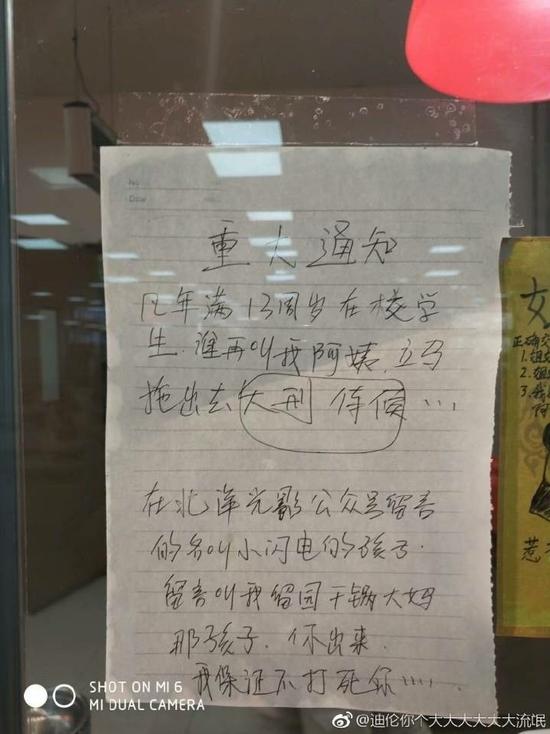 No
Date
重大通知
凡年满13周岁在校学
生.谁再叫我阿姨.立马
拖出去大刑 侍候…
在北洋光影公众号留言
的名叫小闪电的孩子.
留言叫我留园干锅大妈
那孩子.你出来.
我保证不打死你….
女
正确交
1.姐
2.姐
3.我
惹
SHOT ON MI 6
MI DUAL CAMERA
@迪伦你个大大大大大大流氓